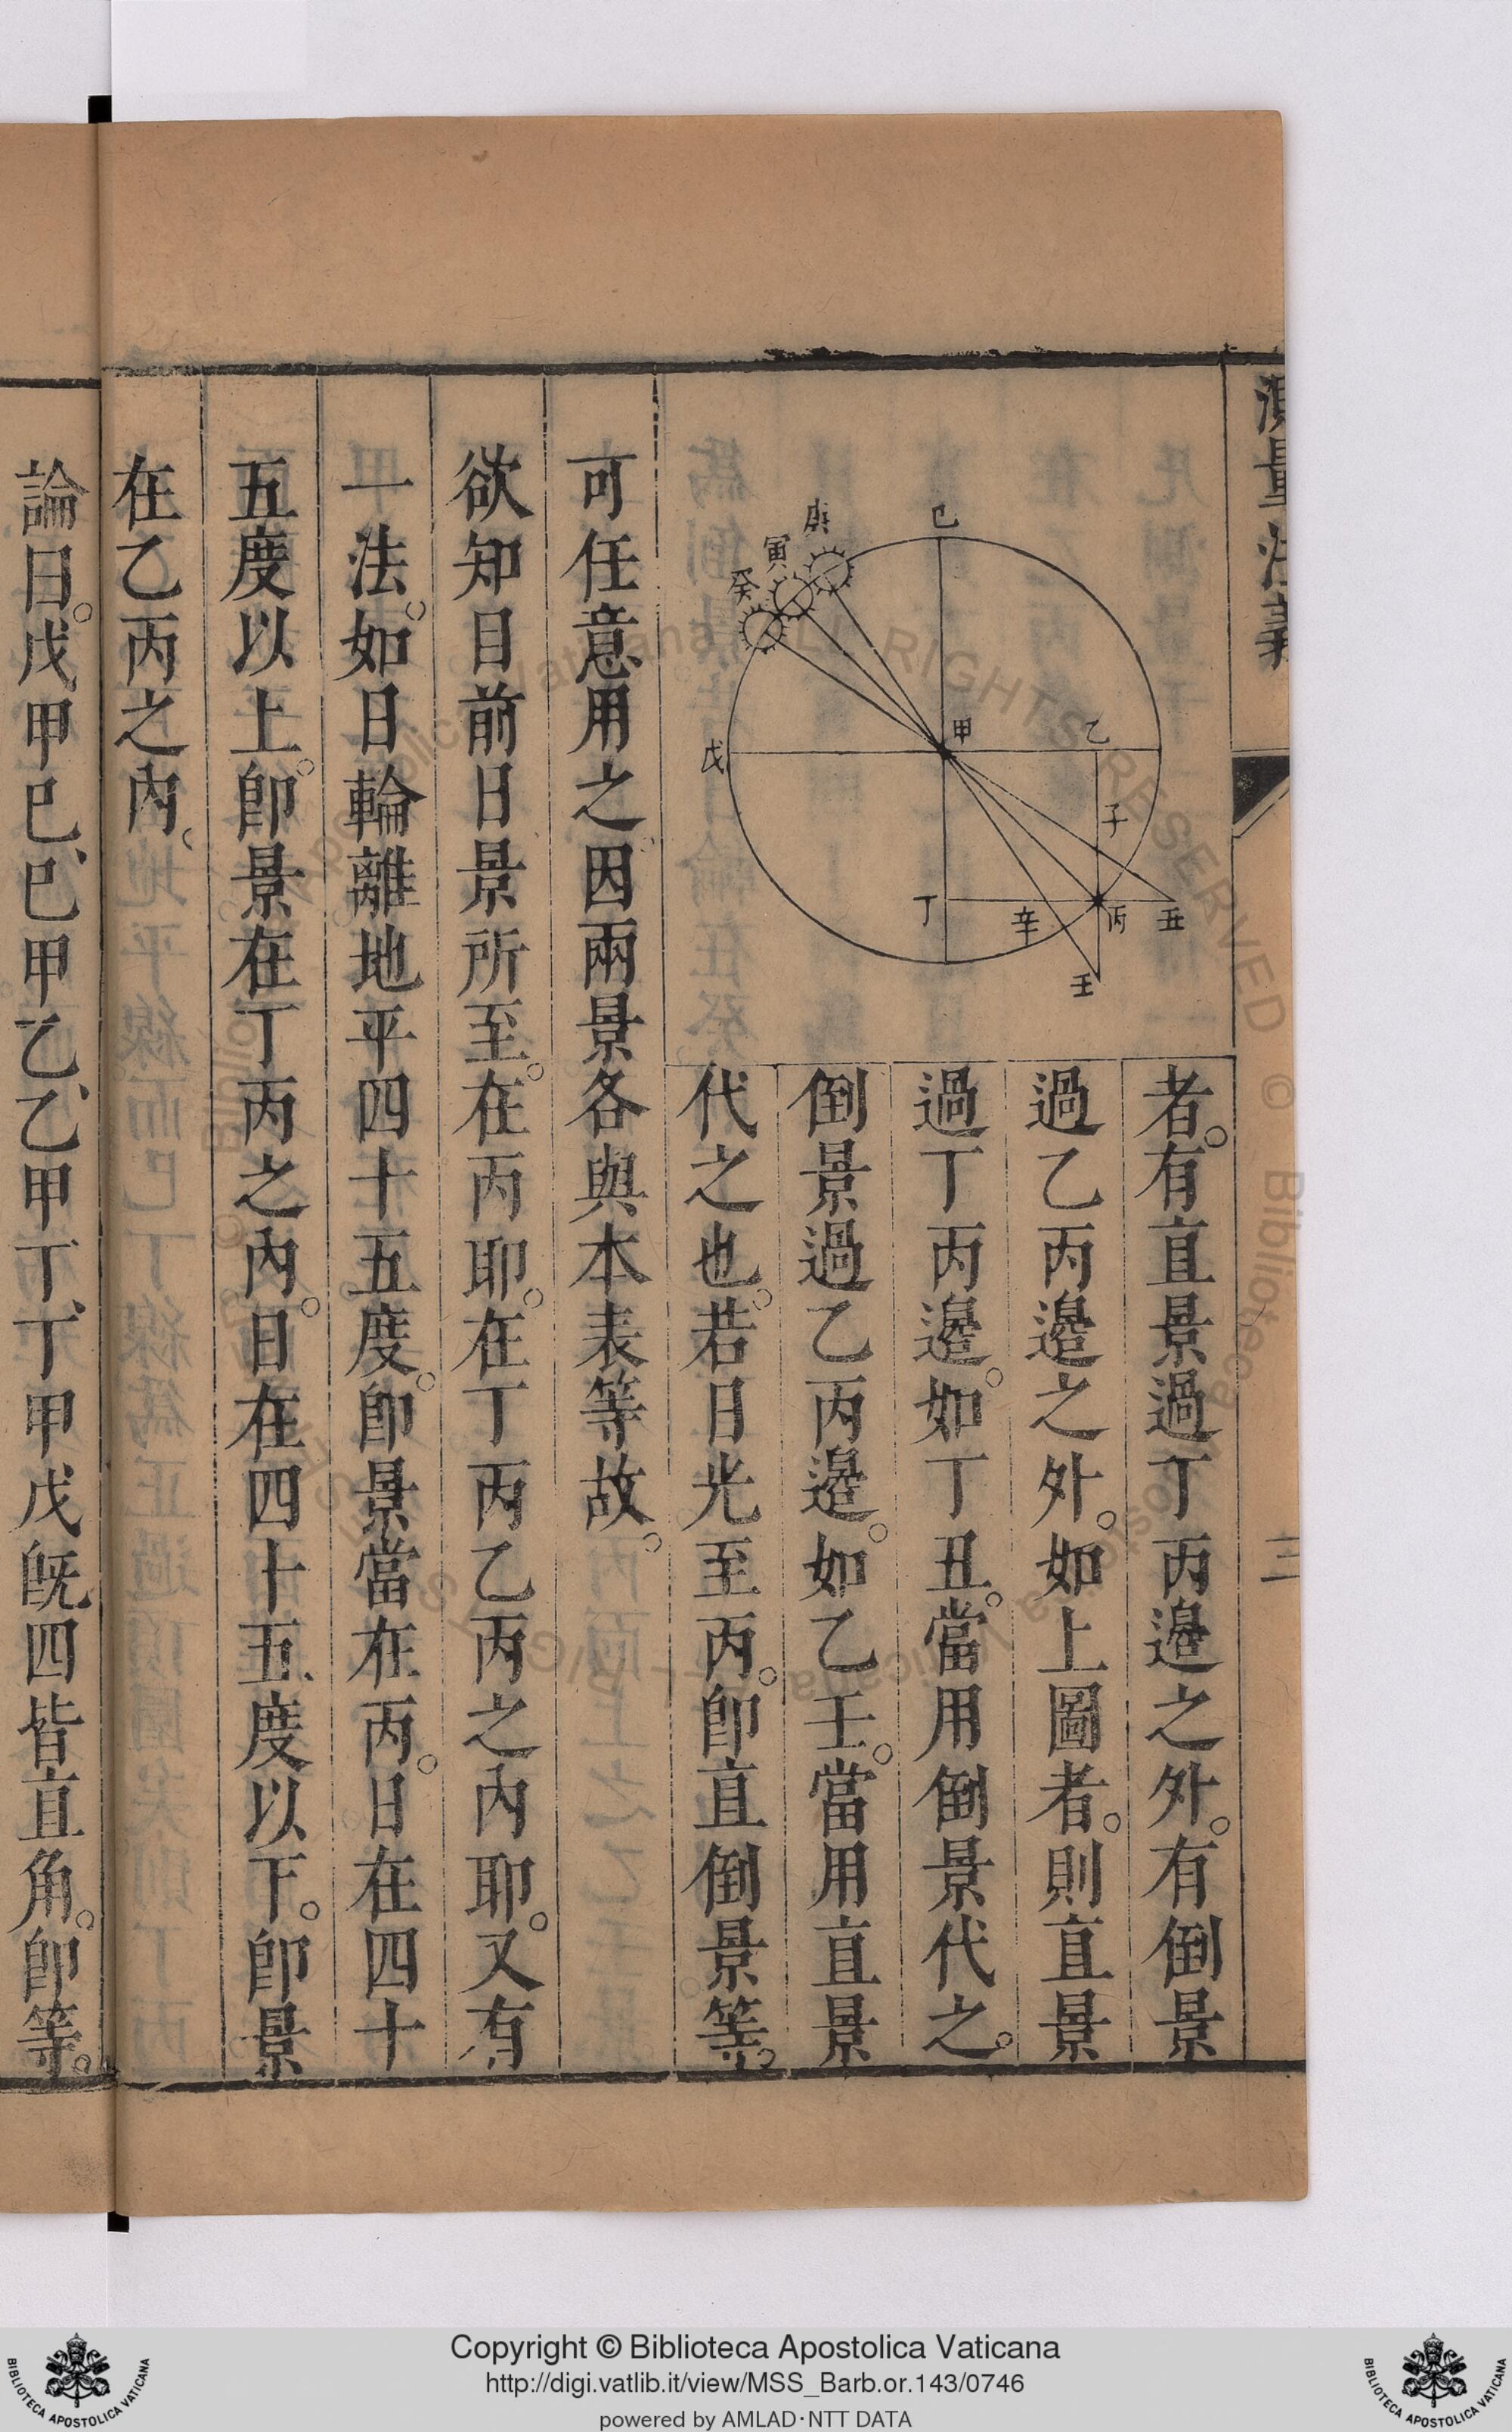 測量法義
三
者。有直景過丁丙邊之外。有倒景
過乙丙邊之外。如上圖者。則直景
過丁丙邊。如丁丑。當用倒景代之。
倒景過乙丙邊。如乙壬。當用直景
代之也。若日光至丙。卽直倒景等。
己
庚
寅
癸
甲
乙
戊
子
丁
辛
丙
丑
壬
可任意用之。因兩景各與本表等故。
欲知目前日景所至。在丙耶。在丁丙乙丙之內耶。又有
一法。如日輪離地平四十五度。卽景當在丙。日在四十
五度以上。卽景在丁丙之內。日在四十五度以下。卽景
在乙丙之內。
論曰。戊甲巳、巳甲乙、乙甲丁、丁甲戊旣四皆直角。卽等。
Copyright © Biblioteca Apostolica Vaticana
http://digi.vatlib.it/view/MSS_Barb.or.143/0746
powered by AMLAD·NTT DATA
BIBLIOTECA APOSTOLICA VATICANA
BIBLIOTECA APOSTOLICA VATICANA